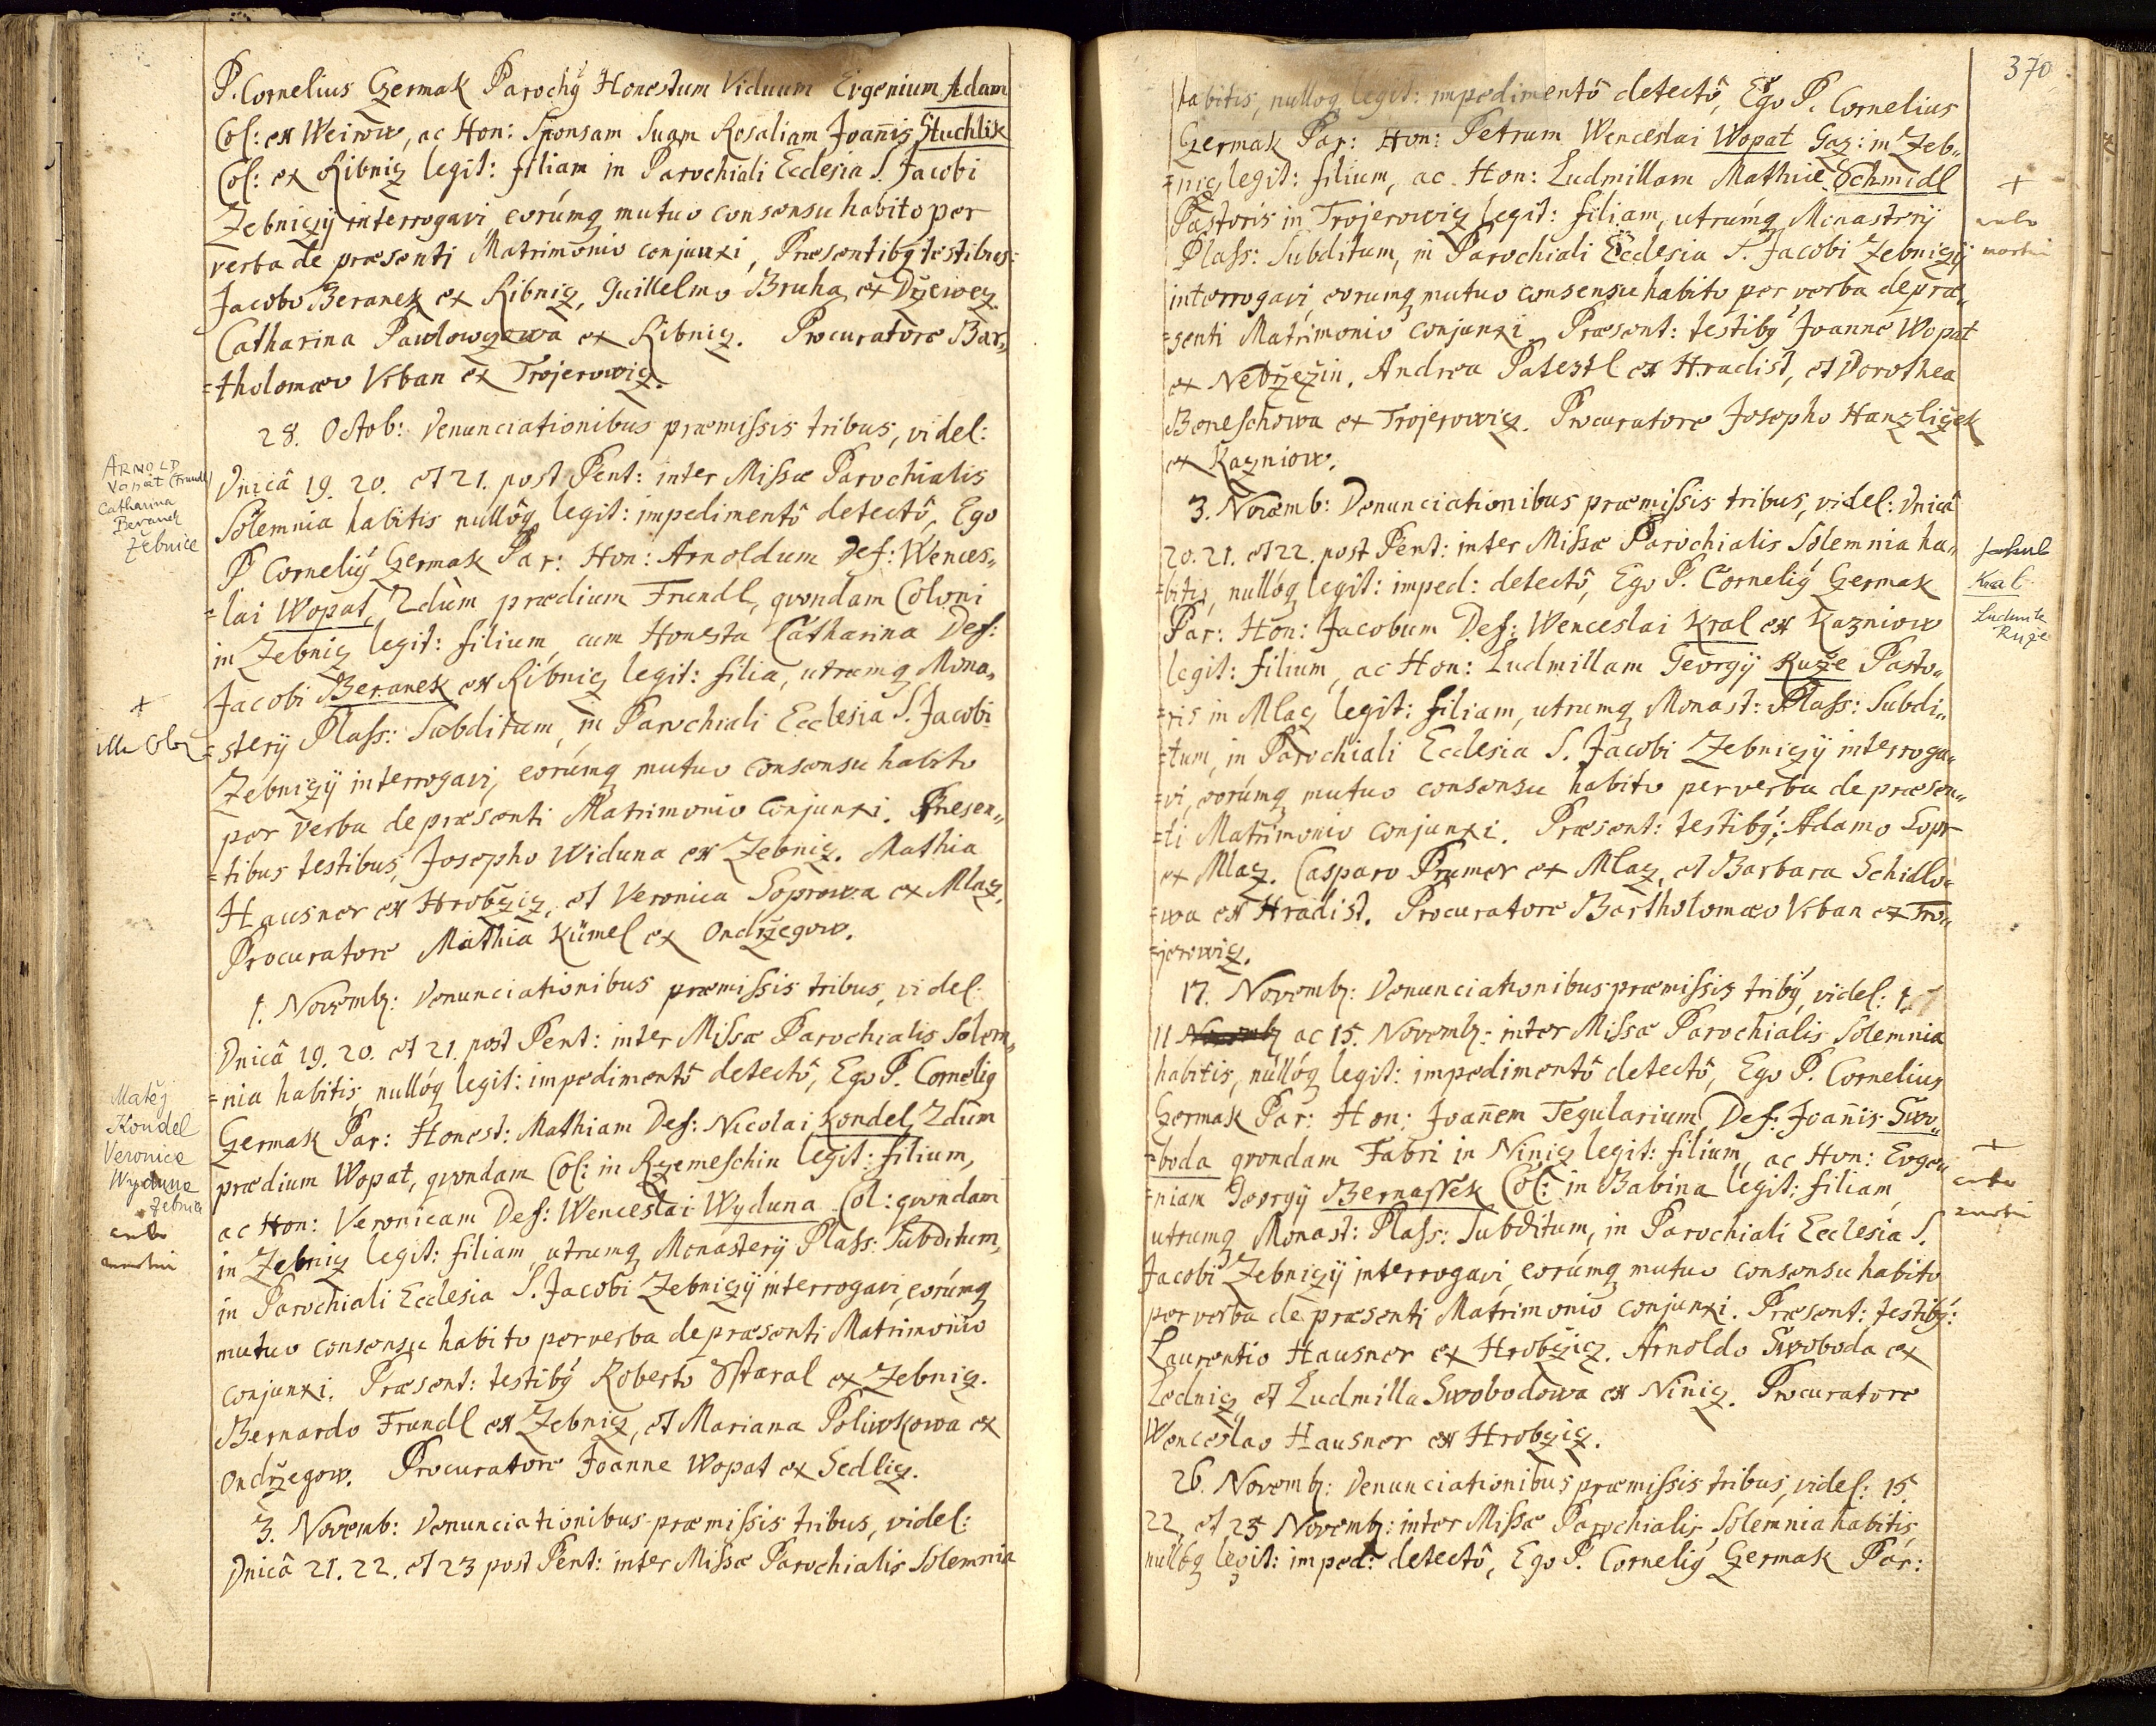 P. Cornelius Czermak Parochꝰ Honestum Viduum Evgenium Adam
Col: ex Weirow, ac Hon: Sponsam Suam Rosaliam Joannis Stuchlik
Col: ex Ribnicz legit: filiam in Parochiali Ecclesia S. Jacobi
Zebniczij interrogavi eorúmq mutuo consensu habito per
verba de præsenti Matrimonio conjunxi, Præsentibꝰ testibus:
Jacobo Beranek ex Ribnicz, Guillelmo Bruha ex Drzewecz
Catharina Pawlowczowa ex Ribnicz. Procuratore Bar„
=tholomæo Vrban ex Trojerowicz.
28. Octob: Denunciationibus præmissis tribus, videl:
ARNOLD
Vopat (Frundl)
Catharina
Beranek
Žebnice
Dnicâ 19. 20. et 21. post Pent: inter Missæ Parochialis
Solemnia habitis nullôq legit: impedimentô detectô, Ego
P Corneliꝰ Czermak Par: Hon: Arnoldum Def: Wences„
=lai Wopat, 2dùm prædium Frundl, qvondam Coloni
in Zebnicz legit: filium, cum Honesta Catharina Def:
Jacobi Beranek ex Ribnicz legit: filia, utrumq Mona„
+
ille Col
=sterij Plass: Subditum, in Parochiali Ecclesia S. Jacobi
Zebniczij interrogavi, eorúmq mutuo consensu habito
per verba de præsenti Matrimonio conjunxi. Præsen„
=tibus testibus, Josepho Widuna ex Zebnicz. Mathia
Hausner ex Hrobczicz, et Veronica Soprowa ex Mlacz.
Procuratore Mathia Kümel ex Ondrzegow.
1. Novemb: Denunciationibus præmissis tribus, videl:
Dnicâ 19. 20. et 21. post Pent: inter Missæ Parochialis Solem„
=nia habitis, nullóq legit: impedimentô detectô, Ego P. Corneliꝰ
Matěj
Kondel
Veronice
Wyduna
Žebnice
ambo
mortui
Czermak Par: Honest: Mathiam Def: Nicolai Kondel, 2dùm
prædium Wopat, qvondam Col: in Rzemeschin legit: filium,
ac Hon: Veronicam Def: Wenceslai Wyduna Col: qvondam
in Zebnicz legit: filiam, utrumq Monasterij Plass: Subditum,
in Parochiali Ecclesia S. Jacobi Zebniczij interrogavi, eorúmq
mutuo consensu habito per verba de præsenti Matrimonio
conjunxi. Præsent: testibꝰ Roberto Sstaral ex Zebnicz.
Bernardo Frundl ex Zebnicz, et Mariana Poliwkowa ex
Ondrzegow. Procuratore Joanne Wopat ex Sedlicz.
3. Novemb: Denunciationibus præmissis tribus, videl:
Dnicâ 21. 22. et 23 post Pent: inter Missæ Parochialis Solemnia
370
habitis, nulloq legit: impedimentô detectô, Ego P. Cornelius
Czermak Par: Hon: Petrum Wenceslai Wopat Gaz: in Zeb„
=nicz legit: filium, ac Hon: Ludmillam Mathiæ Schmidl
Pastoris in Trojerowicz legit: filiam, utrúmq Monasterij
Plass: Subditum, in Parochiali Ecclesia S. Jacobi Zebniczij
+
ambo
mortui
interrogavi, eorumq mutuo consensu habito per verba de præ„
=senti Matrimonio conjunxi. Præsent: testibꝰ Joanne Wopat
ex Nebrzezin, Andrea Patestl ex Hradist, et Dorothea
Beneschowa ex Trojerowicz. Procuratore Josepho Hanzliczek
ex Kazniow.
3. Novemb: Denunciationibus præmissis tribus, videl: Dnicâ
20. 21. et 22. post Pent: inter Missæ Parochialis Solemnia ha„
=bitis, nullóq legit: imped: detectô, Ego P. Corneliꝰ Czermak
Jakub
Kral
Ludmila
Ruže
Par: Hon: Jacobum Def: Wenceslai Kral ex Kazniow
legit: filium, ac Hon: Ludmillam Georgij Ruže Pasto„
=ris in Mlacz legit: filiam, utrumq Monast: Plass: Subdi„
=tum, in Parochiali Ecclesia S. Jacobi Zebniczij interroga„
=vi, eorúmq mutuo consensu habito per verba de præsen„
=ti Matrimonio conjunxi. Præsent: testibꝰ: Adamo Sopr
ex Mlacz. Casparo Prumer ex Mlacz, et Barbara Schidlo„
=wa ex Hradist. Procuratore Bartholomæo Vrban ex Tro„
=jerowicz.
17. Novemb: Denunciationibus præmissis tribꝰ, videl:
11 ac 15. Novemb: inter Missæ Parochialis Solemnia
habitis, nullóq legit: impedimentô detectô, Ego P. Cornelius
Czermak Par: Hon: Joannem Tegularium, Def: Joannis Swo„
=boda qvondam Fabri in Ninicz legit: filium, ac Hon: Evge„
=niam Georgij Bernassek Col: in Babina legit: filiam,
+
ambo
mortui
utrumq Monast: Plass: Subditum, in Parochiali Ecclesia S.
Jacobi Zebniczij interrogavi, eorúmq mutuo consensu habito
per verba de præsenti Matrimonio conjunxi. Præsent: testibꝰ:
Laurentio Hausner ex Hrobczicz. Arnoldo Swoboda ex
Lednicz, et Ludmilla Swobodowa ex Ninicz. Procuratore
Wenceslao Hausner ex Hrobczicz.
26. Novemb: Denunciationibus præmissis tribus, videl: 15.
22. et 25 Novemb: inter Missæ Parochialis Solemnia habitis,
nullóq legit: imped: detectô, Ego P. Corneliꝰ Czermak Par: